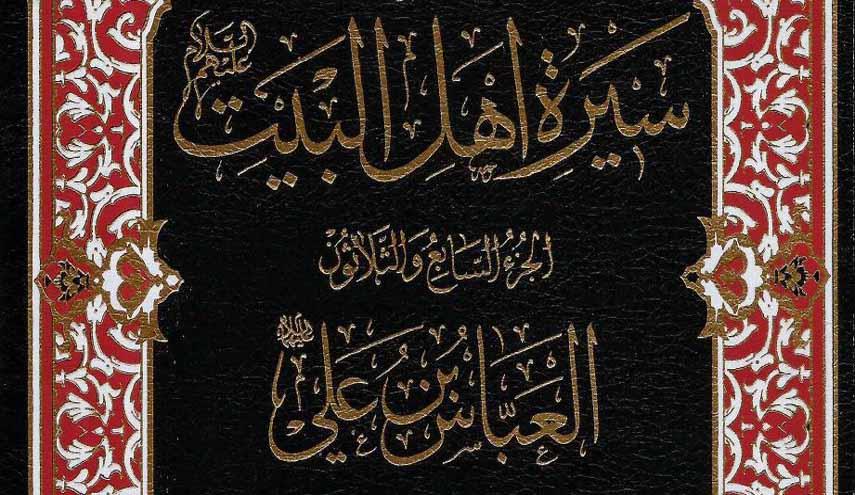 سيرة اهل البيت عليهم السلام
الجزء السابع والثلاثون
العباس بن علي عليه السلام